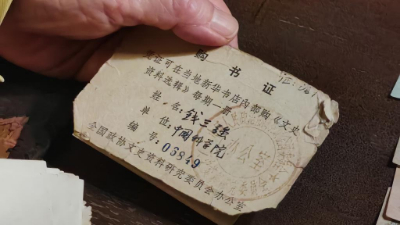 购书证
凭证可在当地新华书店内部购《文史
资料选辑》每期一册
姓名：钱三强
单位：中国科学院
编号：06849
全国政协文史资料研究委员会办公室